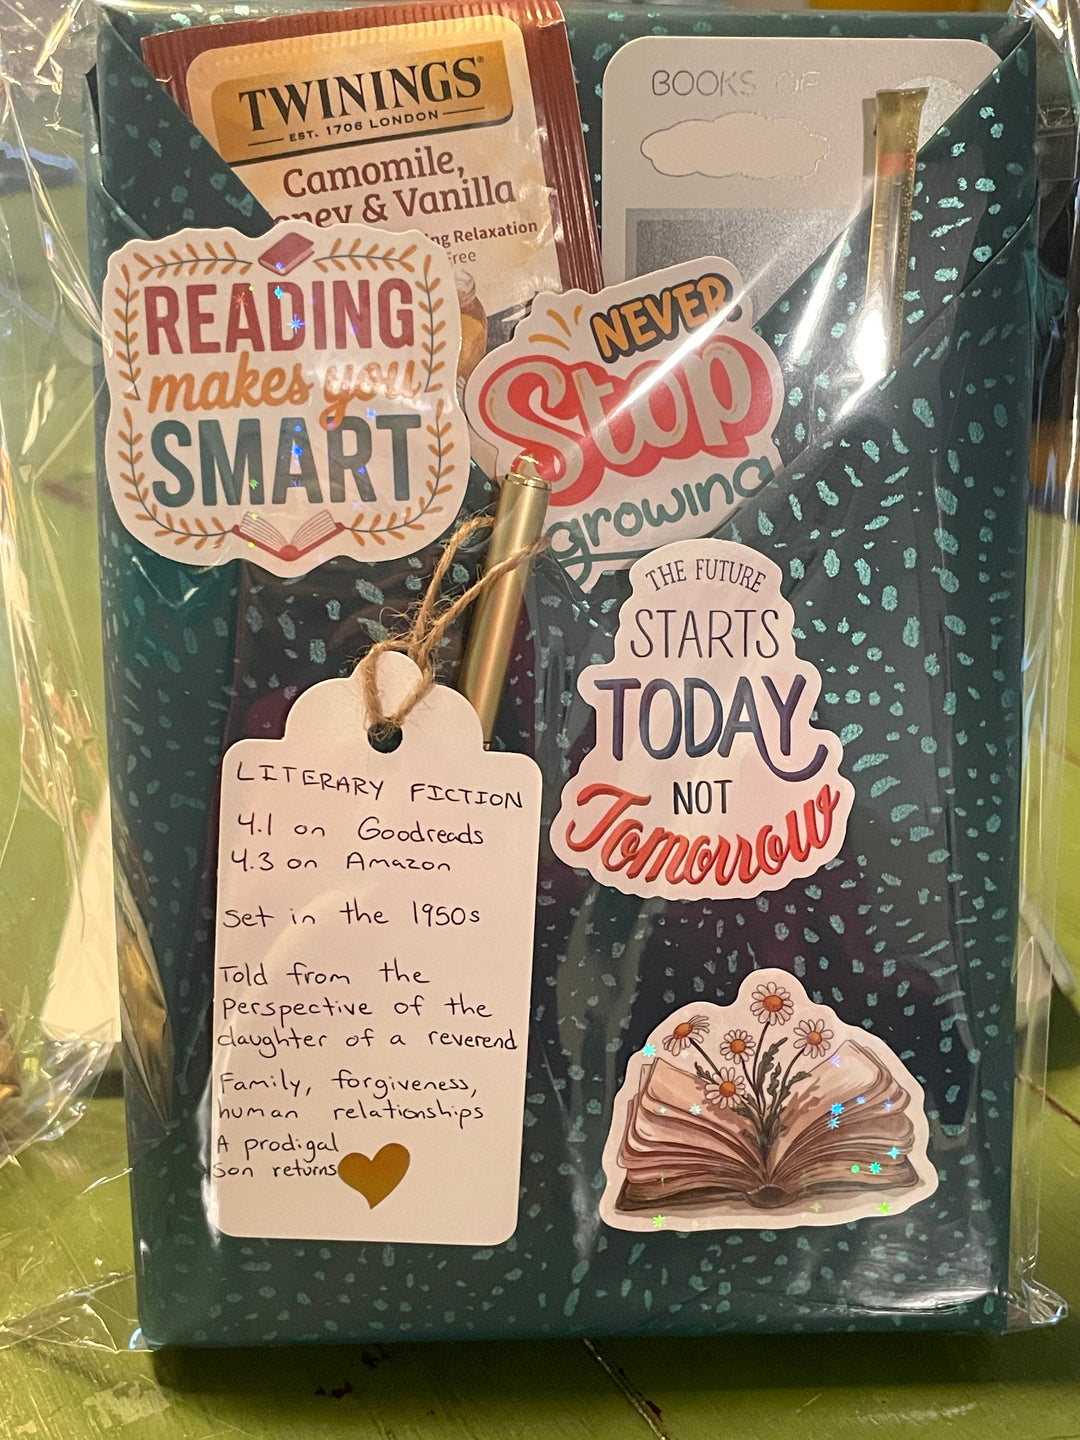 TWININGS
EST. 1706 LONDON
Camomile,
& Vanilla
Relaxation
Free
BOOKS OF
READING
makes you
SMART
NEVER
Stop
growing
THE FUTURE
STARTS
TODAY
NOT
Tomorrow
LITERARY FICTION
4.1 on Goodreads
4.3 on Amazon
Set in the 1950s
Told from the
perspective of the
daughter of a reverend
Family, forgiveness,
human relationships
A prodigal
son returns